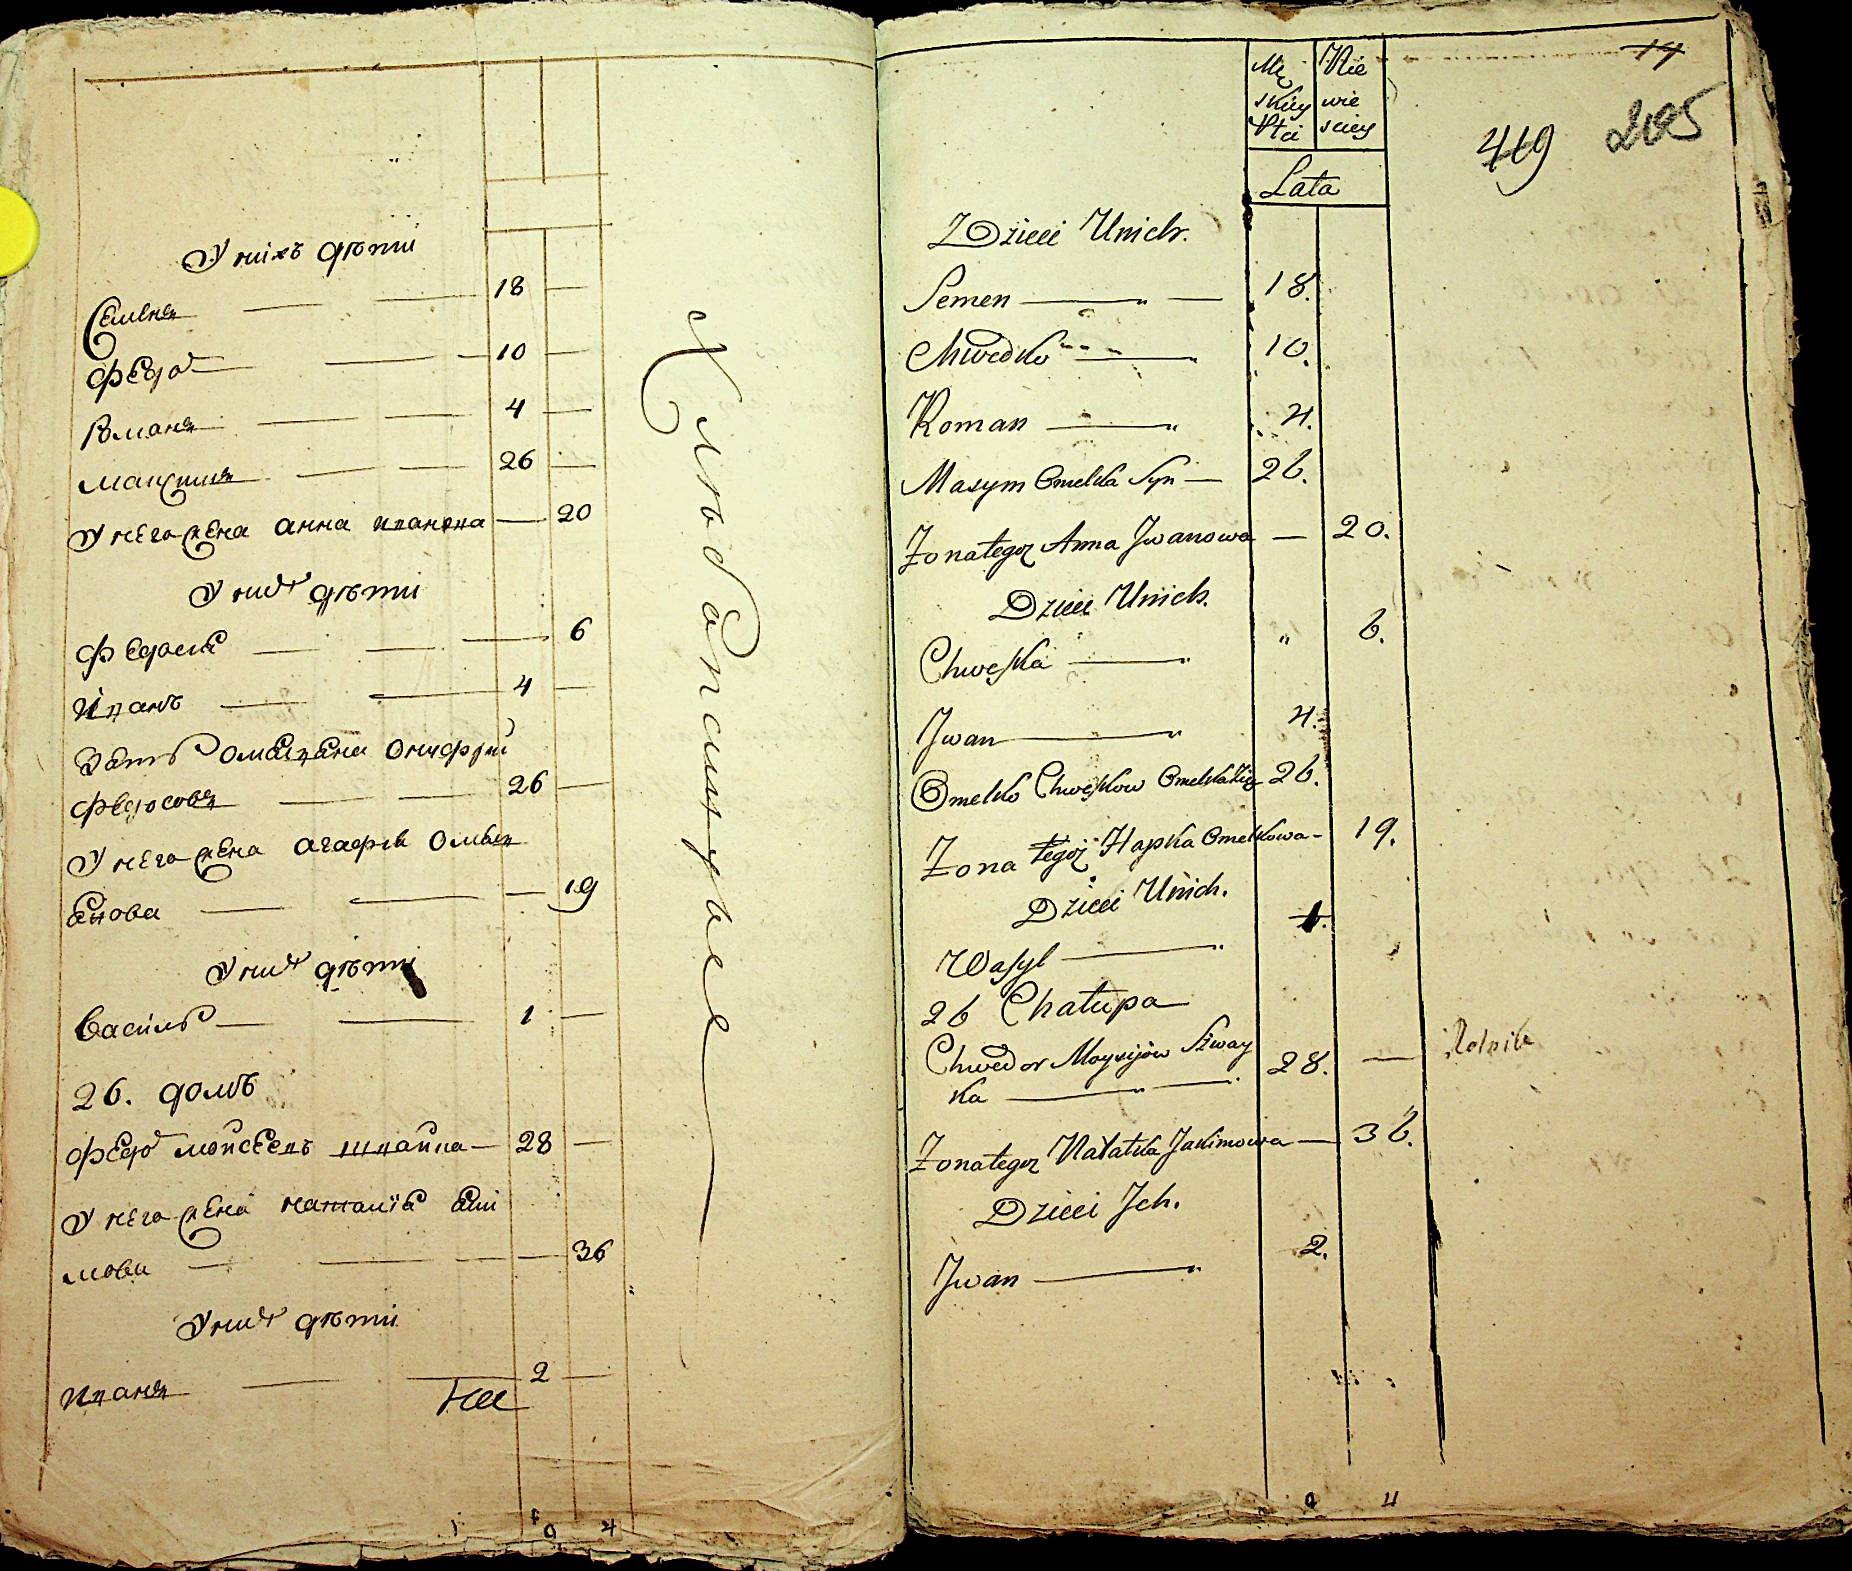 У нихъ дѣти
Семенъ 18
Федор 10
Романъ 4
Максимъ 26
У него жена Анна Иванова 20
У них дѣти
Федосия 6
Иванъ 4
Зять Омеляна
Федосовъ 26
У него жена Агафия Омель
янова 19
У них дѣти
Василь 1
26. домъ
Федор Мойсеевъ Швайка 28
У него жена Наталия Яки
мова 36
У них дѣти
Иванъ 2
Хлѣбопашцы
Mę Nie
skiey wie
Płci sciey
Lata
14
419 205
Dzieci Unich.
Semen 18.
Chwedko 10.
Roman 4.
Maxym Omelka Syn 26.
Zona tegoz Anna Jwanowa 20.
Dzieci Unich.
Chweska " 6.
Jwan 4.
Omelko Chweskow Omelka Zięc 26.
Zona tegoż Hapka Omelkowa 19.
Dzieci Unich.
Wasyl 1.
26 Chałupa
Chwedor Moysijow Szway
ka 28. Rolnik
Zona tegoz Natałka Jakimowa 36.
Dzieci Jch.
Jwan 2.